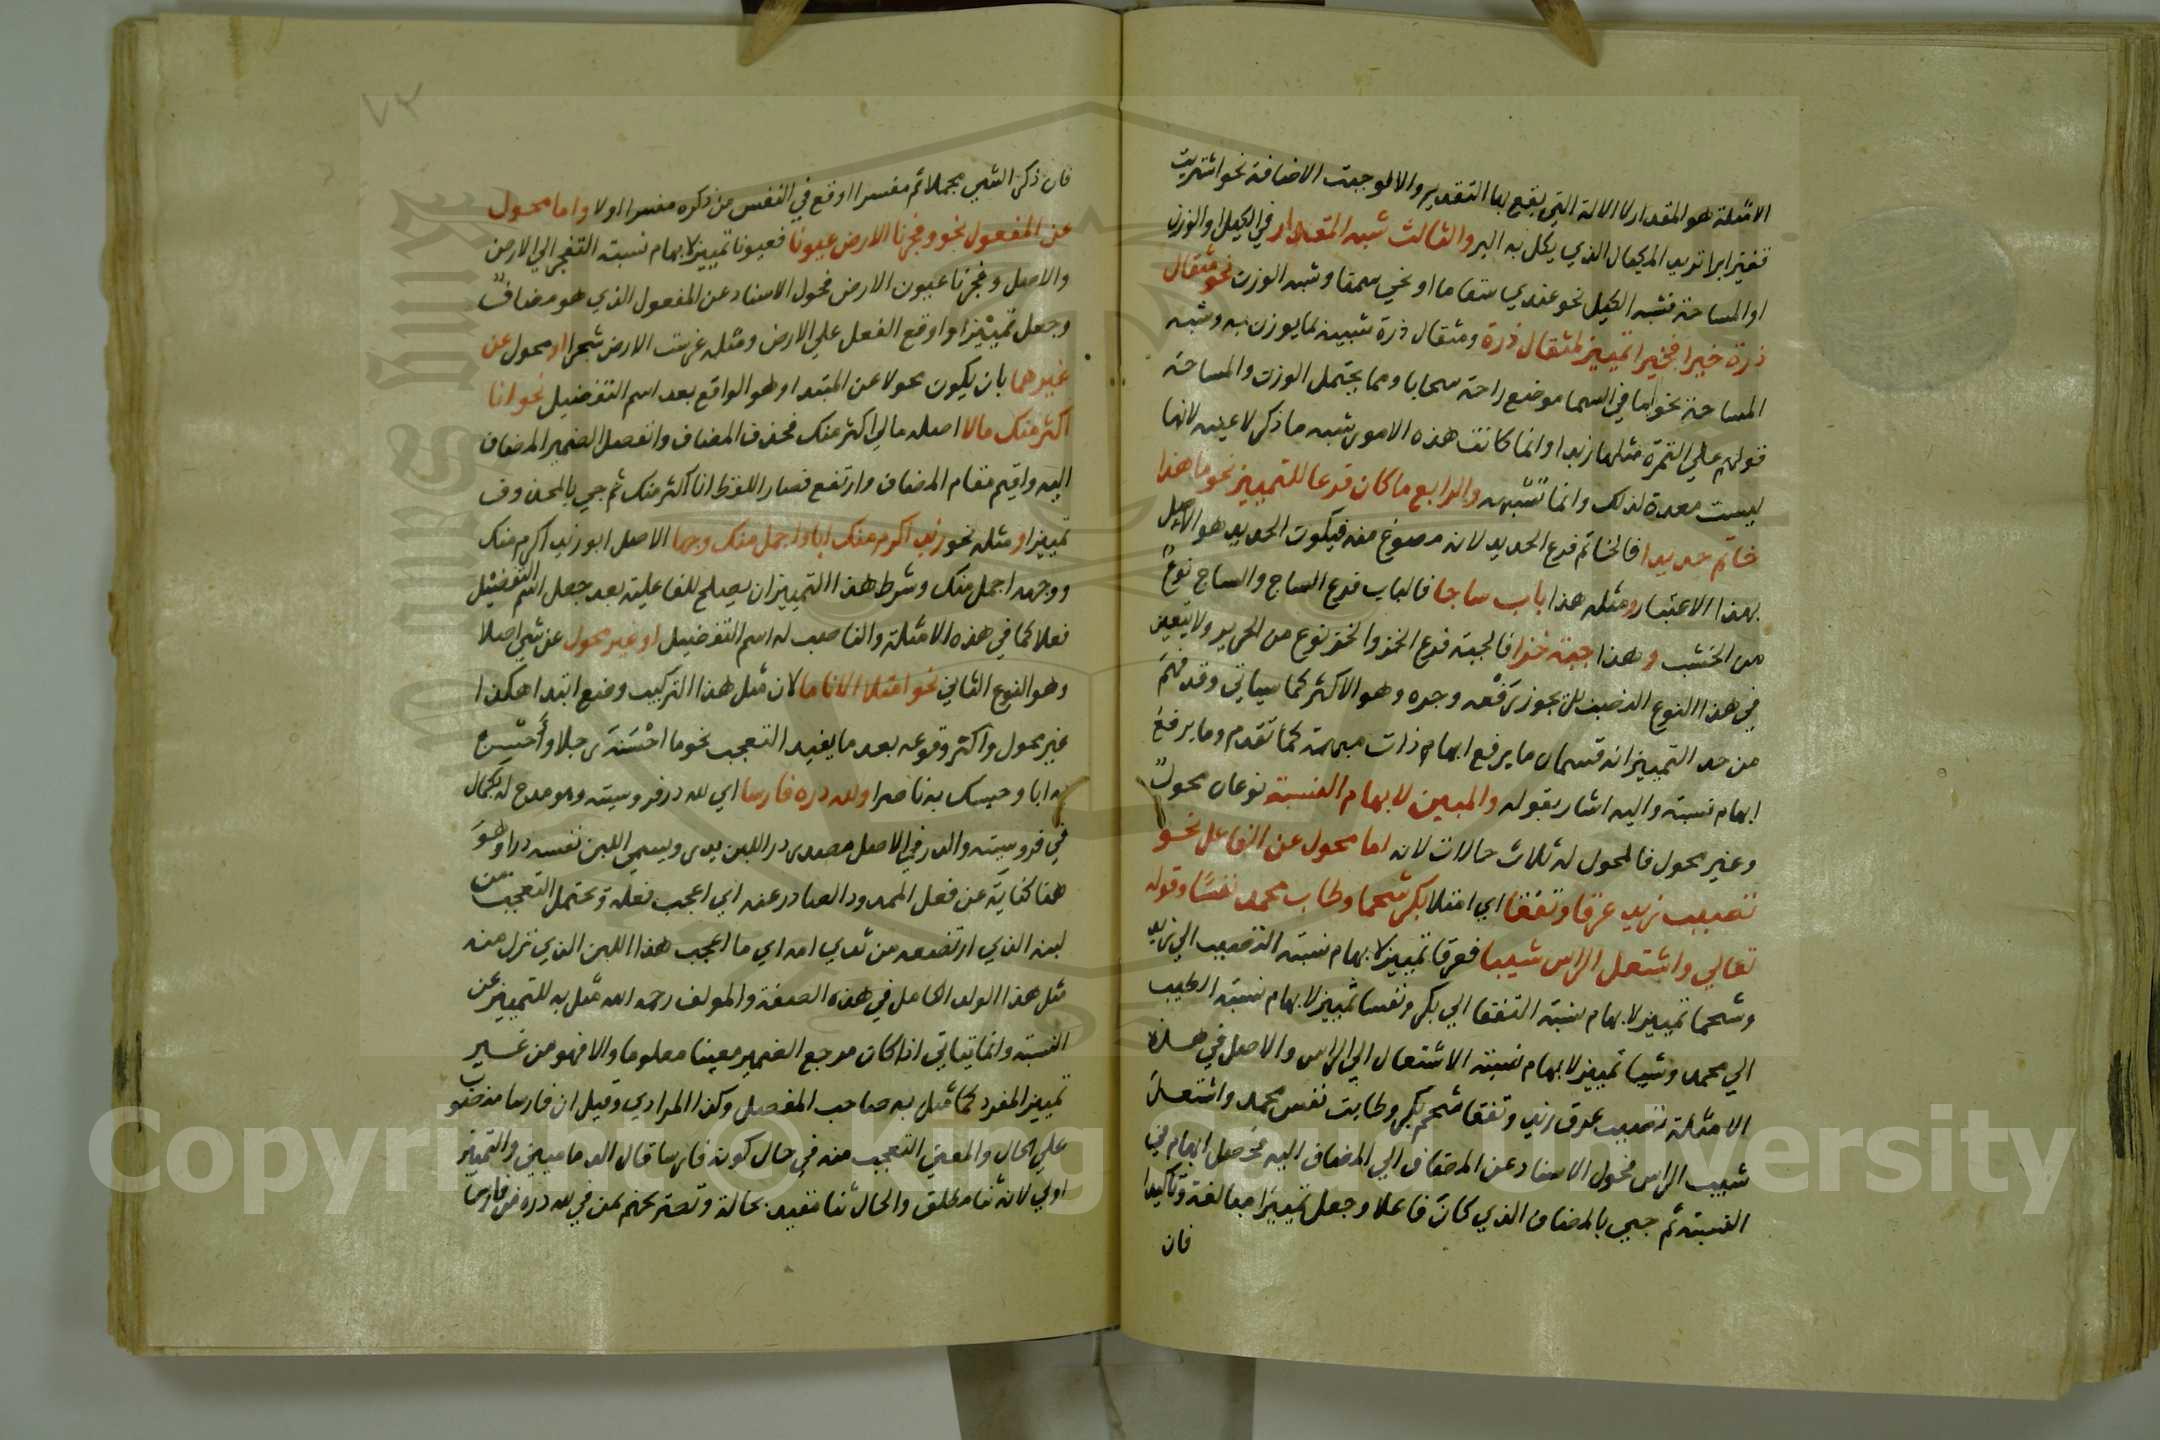 الامثلة هو المقدار لا الالة التي يقع بها التقدير والا لوجبت الاضافة نحو اشتريت
قفيز برا تريد المكيال الذي يكال به البر والثالث شبه المقدار في الكيل او الوزن
او المساحة فشبه الكيل نحو عندي سقاما او نحي سمنا وشبه الوزن نحو مثقال
ذرة خيرا فخيرا تمييز لمثقال ذرة ومثقال ذرة شبيه بما يوزن به وشبه
المساحة نحو ما في السما موضع راحة سحابا ومما يحتمل الوزن والمساحة
قولهم علي التمرة مثلها زبدا وانما كانت هذه الامور شبه ما ذكر لا عينه لانها
ليست معدة لذلك وانما تشبهه والرابع ما كان فرعا للتمييز نحو هذا
خاتم حديدا فالخاتم فرع الحديد لانه مصوغ منه فيكون الحديد هو الاصل
بهذا الاعتبار ومثله هذا باب ساجا فالباب فرع الساج والساج نوع
من الخشب وهذا جبة خزا فالجبة فرع الخز والخز نوع من الحرير ولا يتعين
في هذا النوع النصب بل يجوز رفعه وجره وهو الاكثر كما سياتي وقد فهم
من حد التمييز انه قسمان ما يرفع ابهام ذات مبهمة كما تقدم وما يرفع
ابهام نسبة واليه اشار بقوله والمبين لابهام النسبة نوعان محول
وغير محول فالمحول له ثلاث حالات لانه اما محول عن الفاعل نحو
تصبب زيد عرقا وتفقا اي امتلا بكر شحما وطاب محمد نفسا وقوله
تعالي واشتعل الراس شيبا فعرقا تمييز لابهام نسبة التصبب الي زيد
وشحما تمييز لابهام نسبة التفقا الي بكر ونفسا تمييز لابهام نسبة الطيب
الي محمد وشيبا تمييز لابهام نسبة الاشتعال الي الراس والاصل في هذه
الامثلة تصبب عرق زيد وتفقا شحم بكر وطابت نفس محمد واشتعل
شيب الراس فحول الاسناد عن المضاف الي المضاف اليه فحصل ابهام في
النسبة ثم جيي بالمضاف الذي كان فاعلا وجعل تمييزا مبالغة وتاكيدا
فان
فان ذكر الشي مجملا ثم مفسرا اوقع في النفس من ذكره مفسرا اولا واما محول
عن المفعول نحو وفجرنا الارض عيونا فعيونا تمييز لابهام نسبة التفجر الي الارض
والاصل وفجرنا عيون الارض فحول الاسناد عن المفعول الذي هو مضاف
وجعل تمييزا واوقع الفعل علي الارض ومثله غرست الارض شجرا او محول عن
غيرهما بان يكون محولا عن المبتدا وهو الواقع بعد اسم التفضيل نحو انا
اكثر منك مالا اصله مالي اكثر منك فحذف المضاف وانفصل الضمير المضاف
اليه واقيم مقام المضاف وارتفع فصار اللفظ انا اكثر منك ثم جي بالمحذوف
تمييزا ومثله نحو زيد اكرم منك ابا واجمل منك وجها الاصل ابو زيد اكرم منك
ووجهه اجمل منك وشرط هذا التمييز ان يصلح للفاعلية بعد جعل اسم التفضيل
فعلا كما في هذه الامثلة والناصب له اسم التفضيل او غير محول عن شي اصلا
وهو النوع الثاني نحو امتلا الاناما لان مثل هذا التركيب وضع ابتدا هكذا
غير محول واكثر وقوعه بعد ما يفيد التعجب نحو ما احسنه رجلا وأحسن
به ابا وحسبك به ناصرا ولله دره فارسا اي لله در فروسيته وهو مدح له بكمال
في فروسيته والدر في الاصل مصدر در اللبن يدر ويسمي اللبن نفسه درا وهو
هنا كناية عن فعل الممدود الصادر عنه اي اعجب فعله ويحتمل التعجب من
لبنه الذي ارتضعه من ثدي امه اي ما اعجب هذا اللبن الذي نزل منه
مثل هذا الولد الكامل في هذه الصفة والمولف رحمه الله مثل به للتمييز عن
النسبة وانما ياتي اذا كان مرجع الضمير معينا معلوما والا فهو من غير
تمييز المفرد كما مثل به صاحب المفصل وكذا المرادي وقيل ان فارسا منصوب
علي الحال والمعني التعجب منه في حال كونه فارسا قال الدماميني والتمييز
اولي لانه ثنا مطلق والحال ثنا مقيد بحالة وتصريحهم بمن في لله دره من فارس